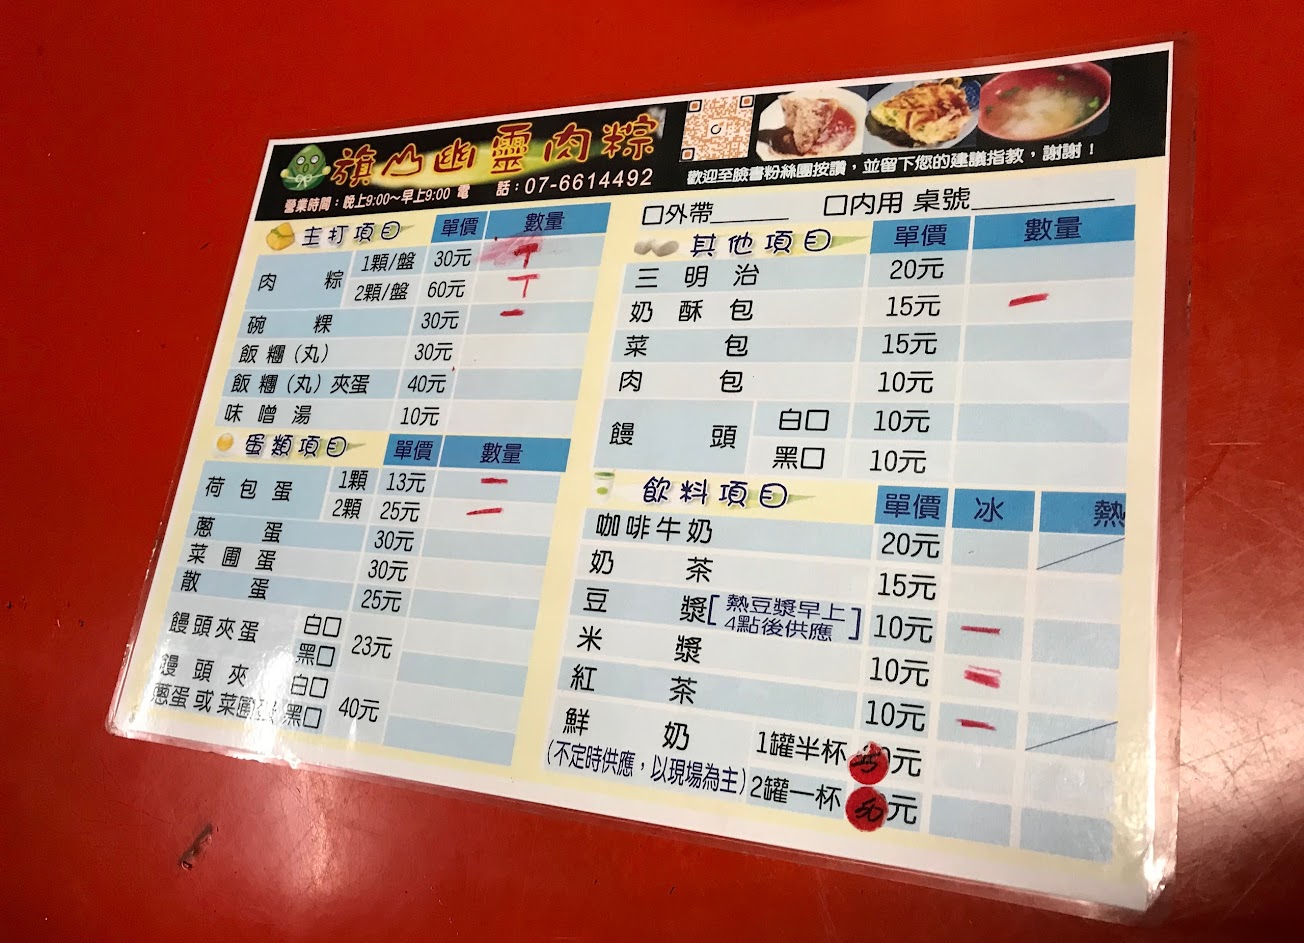 旗山幽靈肉粽
營業時間：晚上9:00~早上9:00 電 話：07-6614492
歡迎至臉書粉絲團按讚，並留下您的建議指教，謝謝！
主打項目 單價 數量
肉粽 1顆/盤 30元 T
2顆/盤 60元 T
碗粿 30元 一
飯糰（丸） 30元
飯糰（丸）夾蛋 40元
味噌湯 10元
蛋類項目 單價 數量
荷包蛋 1顆 13元 一
2顆 25元 一
蔥蛋 30元
菜圃蛋 30元
散蛋 25元
饅頭夾蛋 白口 23元
黑口
饅頭夾 白口 40元
蔥蛋或菜圃蛋 黑口
口外帶______ 口內用 桌號__________
其他項目 單價 數量
三明治 20元
奶酥包 15元 一
菜包 15元
肉包 10元
饅頭 白口 10元
黑口 10元
飲料項目 單價 冰 熱
咖啡牛奶 20元
奶茶 15元
豆漿 [熱豆漿早上 10元 一
4點後供應]
米漿 10元
紅茶 10元 一
鮮奶 1罐半杯 元
(不定時供應，以現場為主) 2罐一杯 元